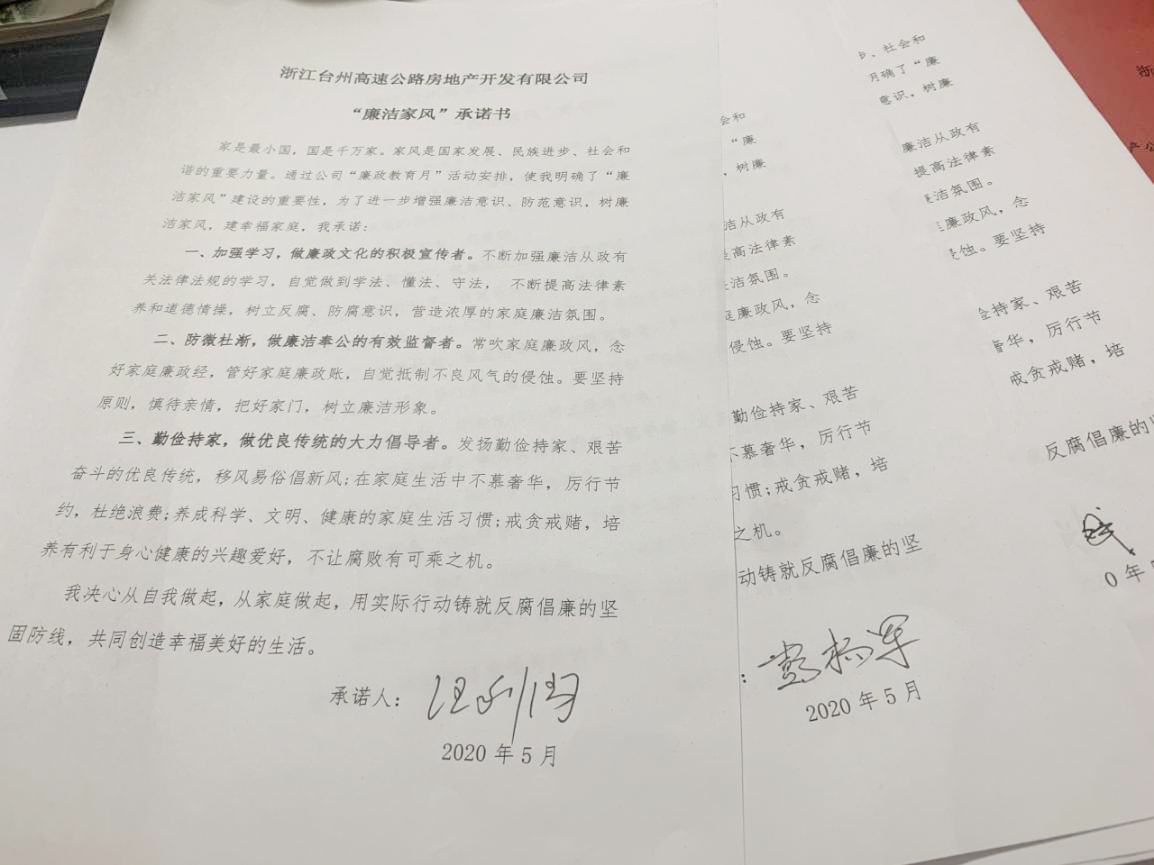 浙江台州高速公路房地产开发有限公司
“廉洁家风”承诺书
家是最小国，国是千万家。家风是国家发展、民族进步、社会和
谐的重要力量。通过公司“廉政教育月”活动安排，使我明确了“廉
洁家风”建设的重要性，为了进一步增强廉洁意识、防范意识，树廉
洁家风，建幸福家庭，我承诺：
一、加强学习，做廉政文化的积极宣传者。不断加强廉洁从政有
关法律法规的学习，自觉做到学法、懂法、守法， 不断提高法律素
养和道德情操，树立反腐、防腐意识，营造浓厚的家庭廉洁氛围。
二、防微杜渐，做廉洁奉公的有效监督者。常吹家庭廉政风，念
好家庭廉政经，管好家庭廉政账，自觉抵制不良风气的侵蚀。要坚持
原则，慎待亲情，把好家门，树立廉洁形象。
三、勤俭持家，做优良传统的大力倡导者。发扬勤俭持家、艰苦
奋斗的优良传统，移风易俗倡新风;在家庭生活中不慕奢华，厉行节
约，杜绝浪费;养成科学、文明、健康的家庭生活习惯;戒贪戒赌，培
养有利于身心健康的兴趣爱好，不让腐败有可乘之机。
我决心从自我做起，从家庭做起，用实际行动铸就反腐倡廉的坚
固防线，共同创造幸福美好的生活。
承诺人：
2020 年 5 月
会和
“廉
，树廉
洁从政有
提高法律素
洁氛围。
庭廉政风，念
侵蚀。要坚持
勤俭持家、艰苦
不慕奢华，厉行节
习惯;戒贪戒赌，培
之机。
动铸就反腐倡廉的坚
：彭杨军
2020 年 5 月
、社会和
明确了“廉
意识，树廉
廉洁从政有
提高法律素
洁氛围。
廉政风，念
蚀。要坚持
俭持家、艰苦
奢华，厉行节
戒贪戒赌，培
反腐倡廉的
0 年
浙
产公